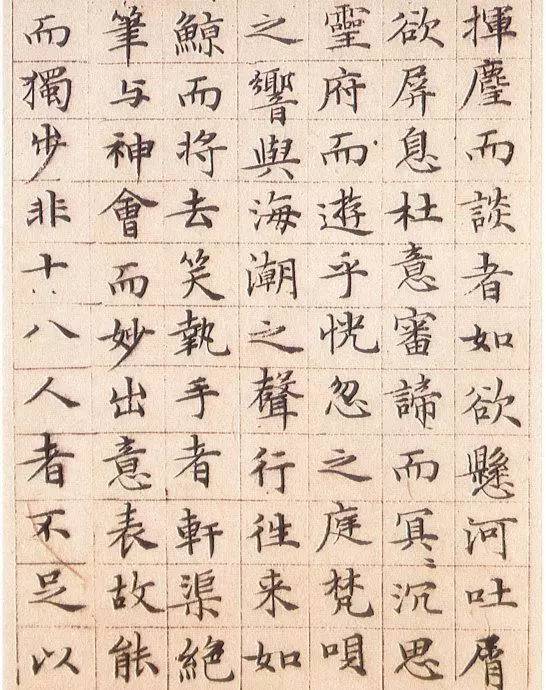 揮麈而談者如欲懸河吐屑
欲屏息杜意審諦而冥〻沉思
靈府而遊乎恍忽之庭梵唄
之響與海潮之聲行徃来如
鯨而將去笑執手者軒渠絕
筆与神會而妙出意表故能
而獨步非十八人者不足以